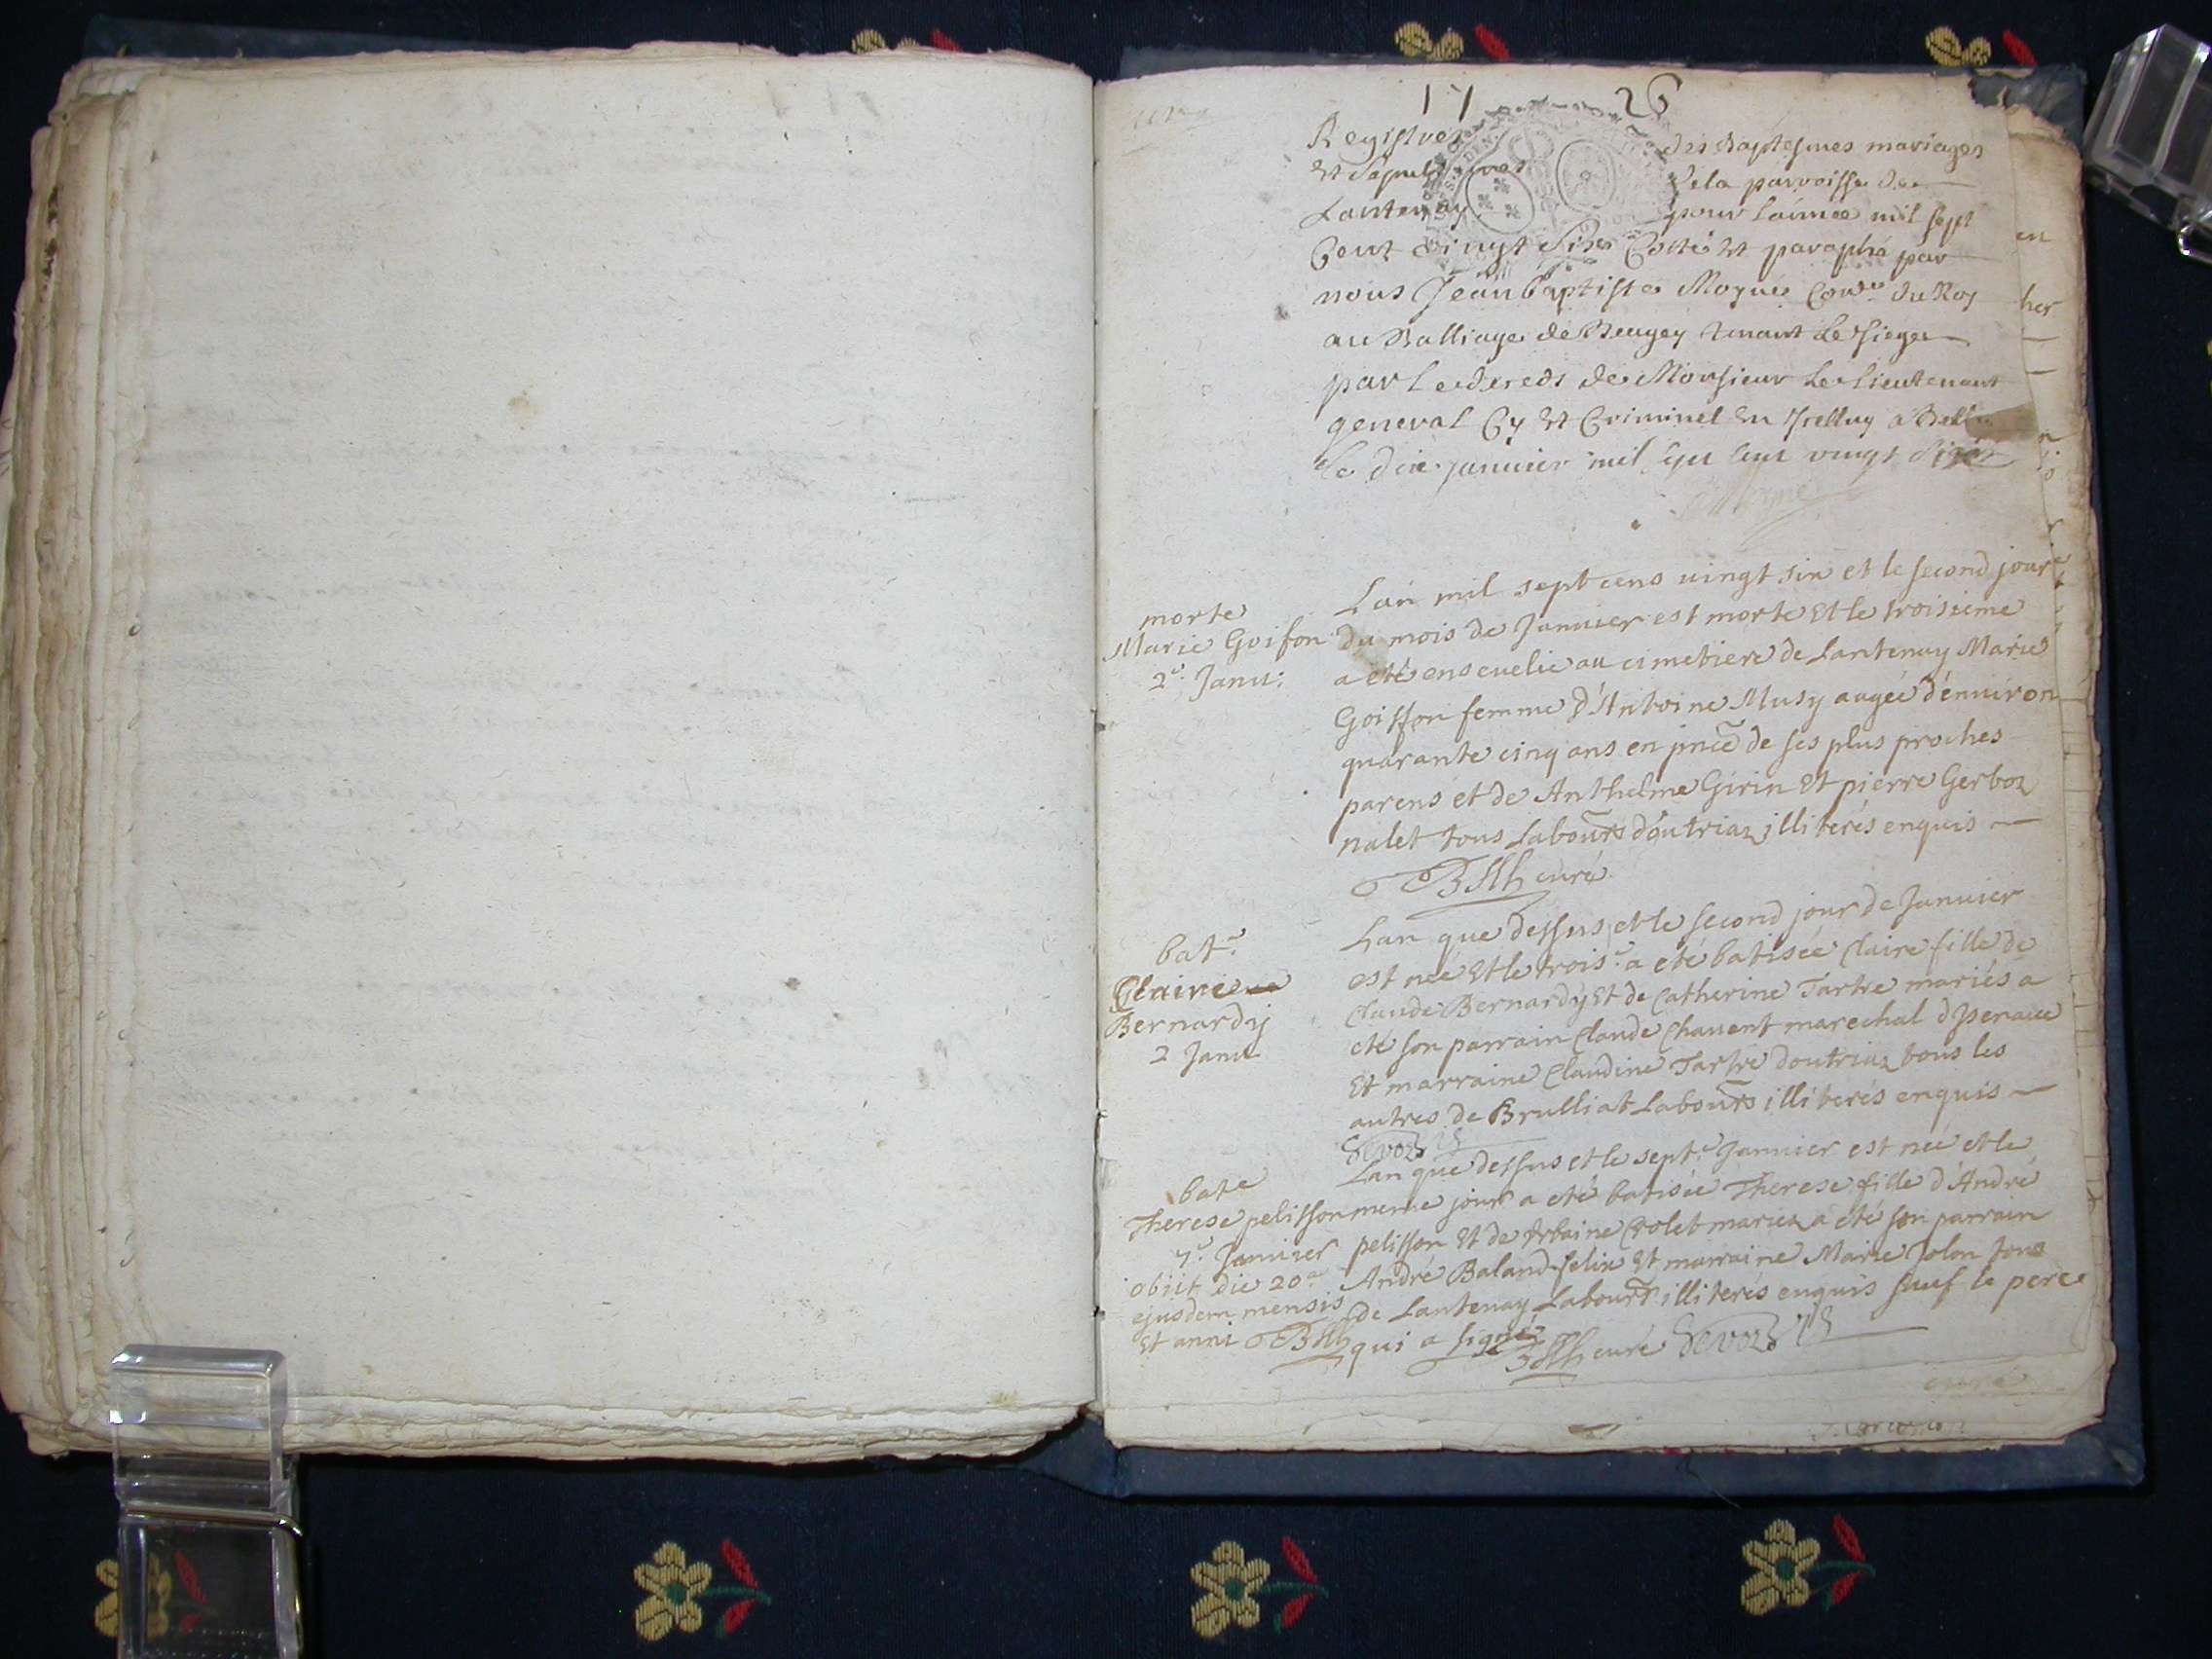 17 26
Registres des Baptesmes mariages
Et Sepultures de la parroisse de
Lantenay pour Lannee mil sept
Cent vingt Six Cotté Et paraphé par
nous Jean baptiste Moyne Consr. du Roy
au Balliage de Beugey tenant Le siege
par Le deceds de Monsieur Le Lieutenant
general Cy Et Criminel En Icelluy a Belley
Le dix Janvier mil sept cent vingt Six
morte
Marie Goifon
2e. Janu:
Lan mil sept cens vingt six et le second jour
du mois de Janvier est morte Et le troisieme
a eté ensevelie au cimetiere de Lantenay Marie
Goiffon femme d'Antoine Musy aagée d'environ
quarante cinq ans en pnce de ses plus proches
parens et de Anthelme Girin Et pierre Gerboz
nalet tous Labours d'outriaz illiterés enquis
curé
bate.
Claire
Bernardy
2 Janu.
Lan que dessus et le second jour de Janvier
est née Et le trois.e a eté batisée Claire fille de
Claude Bernardy Et de Catherine Tartre mariés a
eté son parrain Claude Chavent marechal d'Isenave
Et marraine Claudine Tartre doutriaz tous les
autres de Brulliat Labours illiterés enquis
Devoz
bate
Therese pelisson
7e. Janvier
obiit die 20a
ejusdem mensis
Et anni
Lan que dessus et le sept.e Janvier est née et le
meme jour a eté batisée Therese fille d'André
pelisson Et de Urbaine Crolet mariez a eté son parrain
André Baland-felix Et marraine Marie Jolon tous
de Lantenay Labours illiterés enquis sauf le pere
qui a signé
curé Devoz
curé